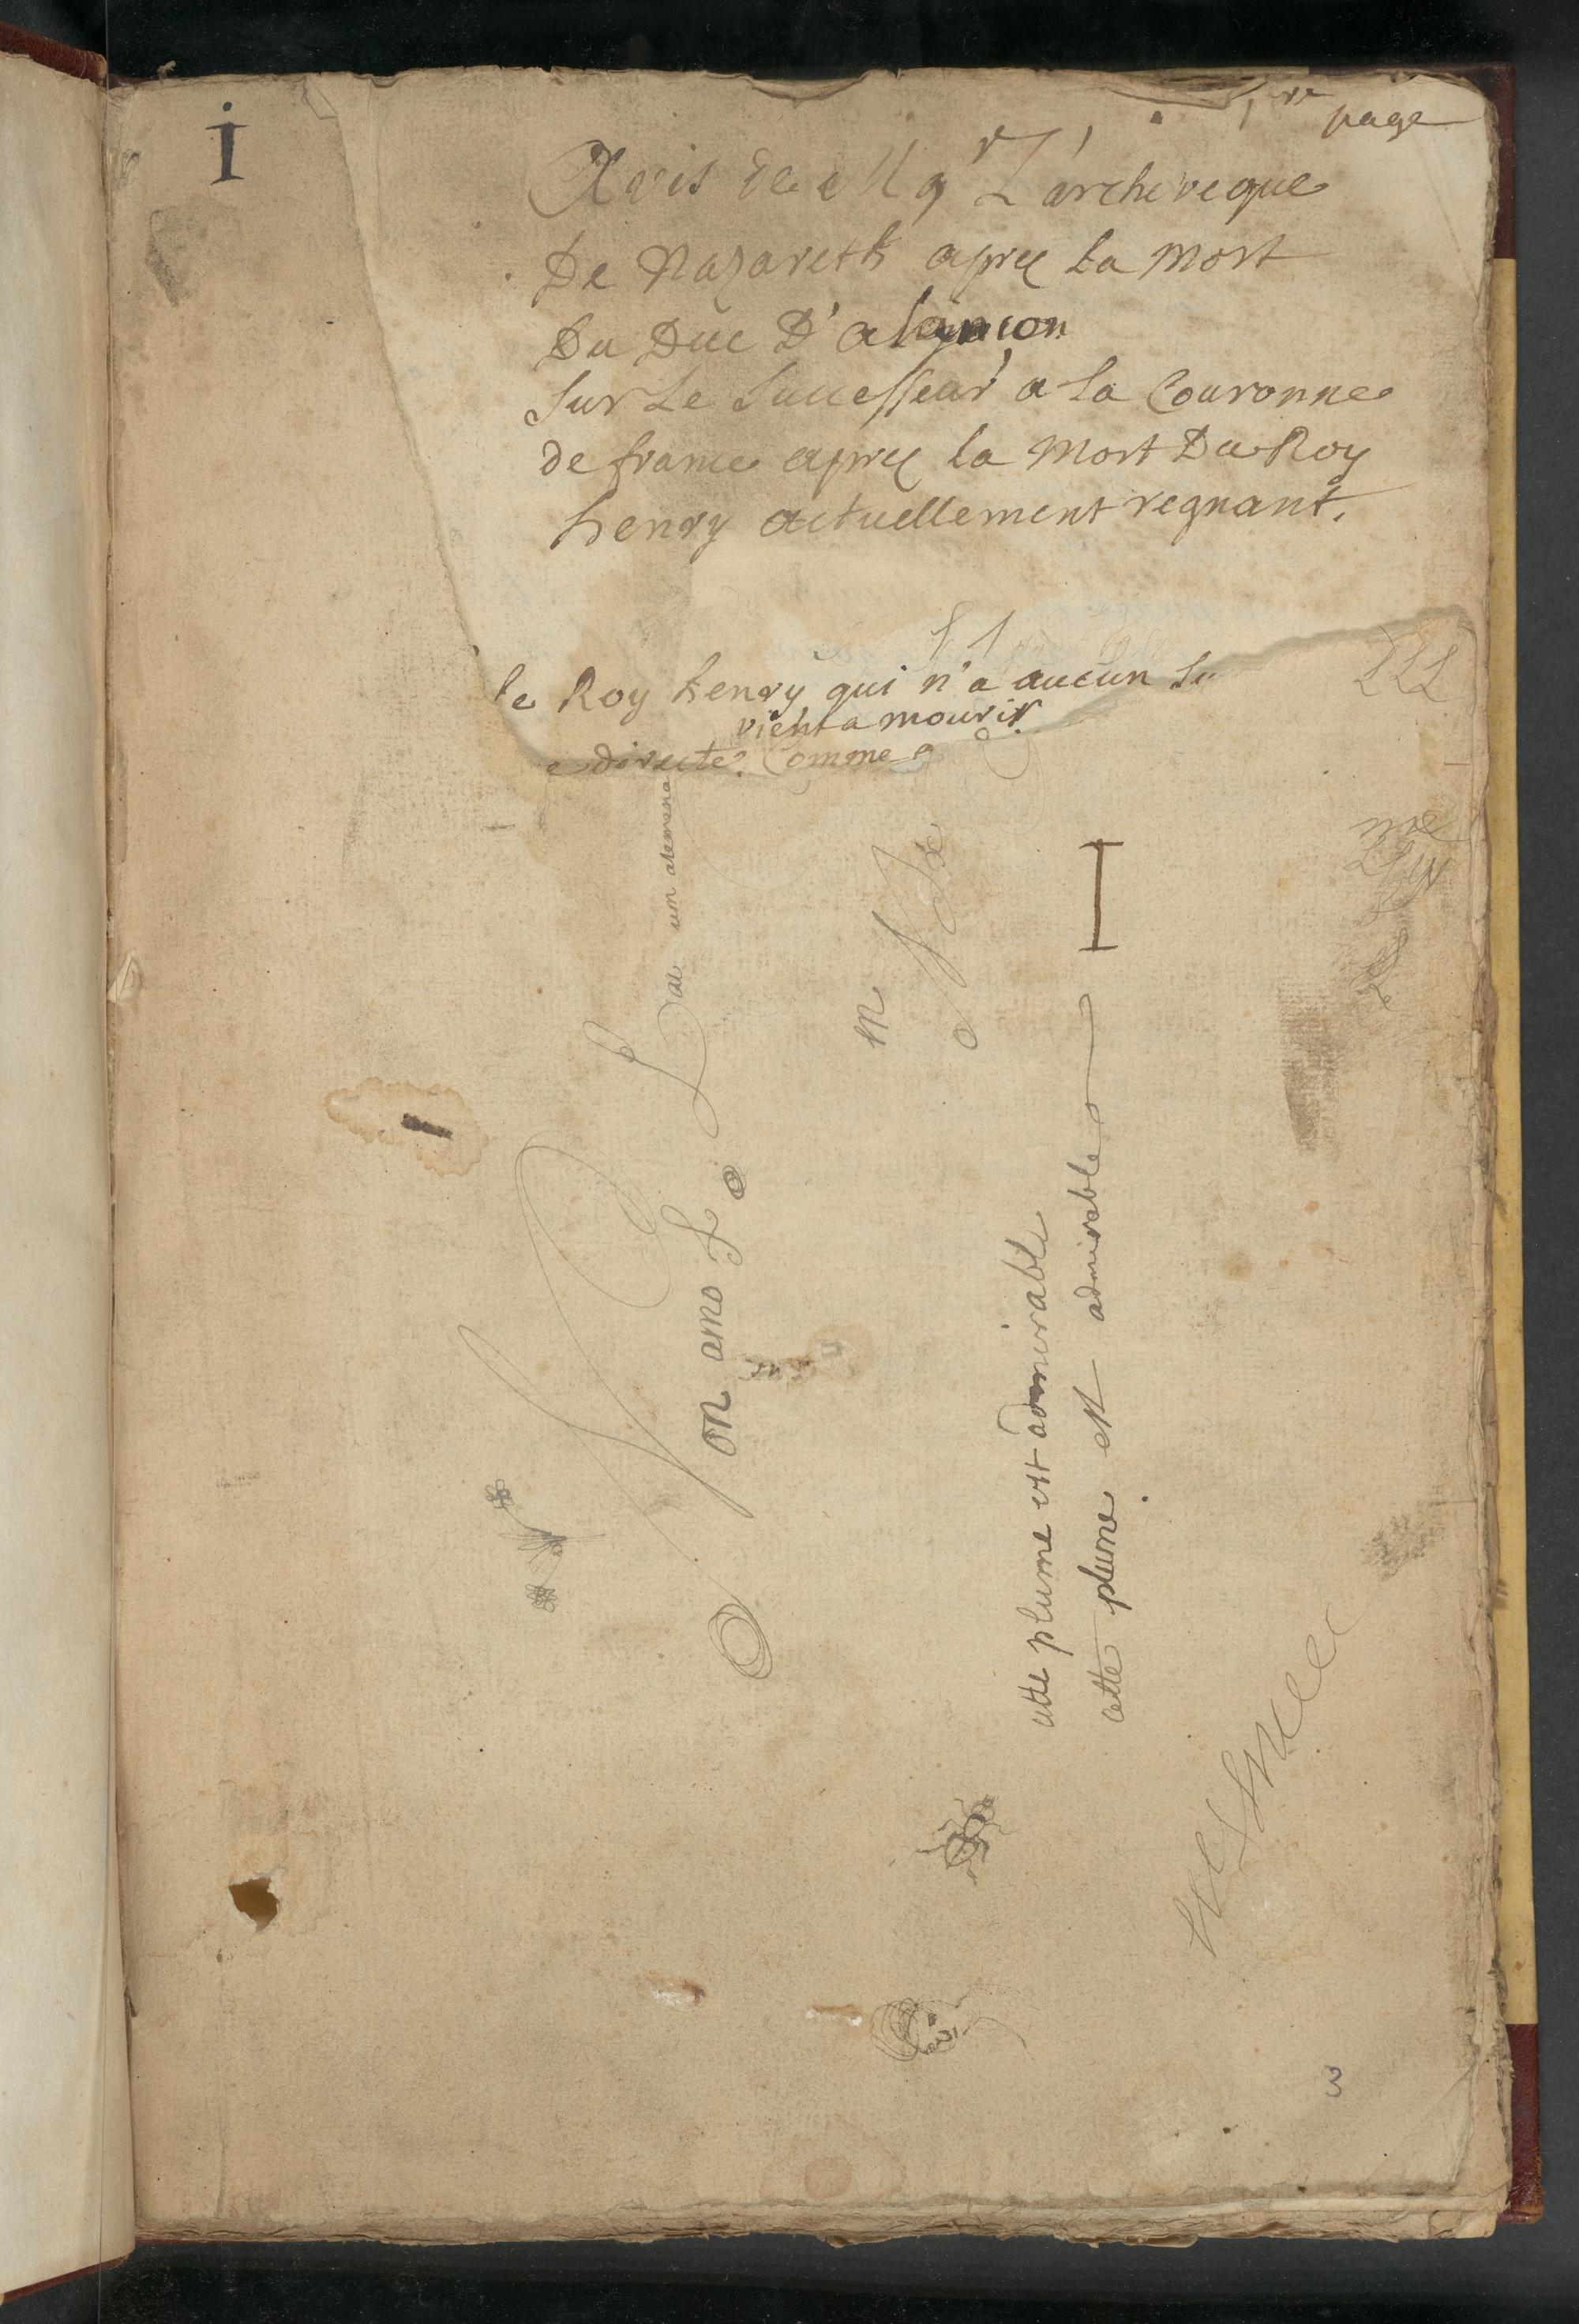 i
1re page
Avis de Mgr L'archeveque
De Nazareth apres La Mort
Du Duc D'alançon
Sur Le Successeur a La Couronne
de france apres la Mort Du Roy
henry actuellement regnant.
le Roy henry qui n'a aucun
vient a mourir
directe. Comme
un
m
I
on amo
cette plume est admirable
cette plume est admirable
3